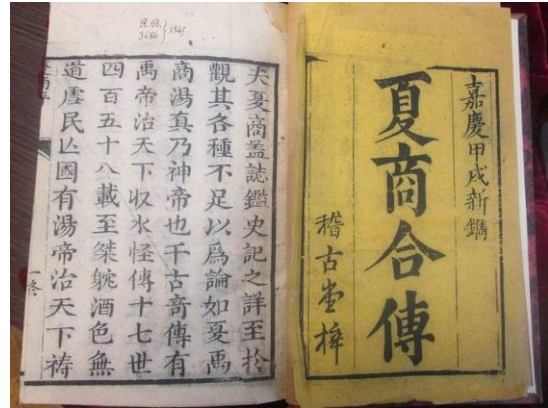 嘉慶甲戌新鐫
夏商合傳
稽古堂梓
夫夏商盖誌鑑史記之詳至扵
觀其各種不足以爲論如夏禹
商湯真乃神帝也千古奇傳有
禹帝治天下收水怪傳十七世
四百五十八載至桀躭酒色無
道虐民亾國有湯帝治天下禱
3686